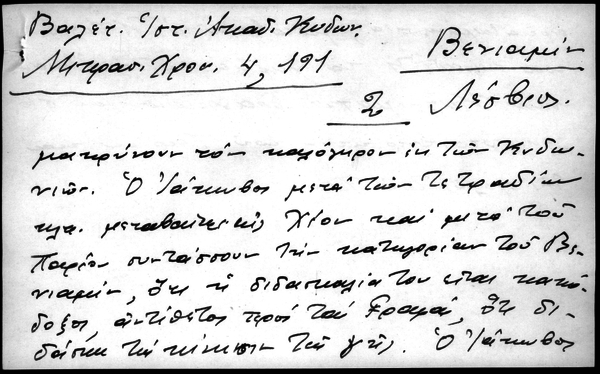 Βαλέτ. Ἱστ. Ἀκαδ. Κυδων.
Μικρασ. Χρον. 4, 191
Βενιαμίν
2 Λέσβιος.
μακρύνουν τὸν καλόγηρον ἐκ τῶν Κυδω-
νιῶν. Ὁ Ἰάκωβος μετὰ τῶν τετραδίων
κλπ. μεταβαίνει εἰς Χίον καὶ μετὰ τοῦ
Παρίου συντάσσουν τὴν κατηγορίαν τοῦ Βε-
νιαμίν, ὅτι ἡ διδασκαλία του εἶναι κακό-
δοξος, ἀντίθετος πρὸς τὰς Γραφάς, ὅτι δι-
δάσκει τὴν κίνησιν τῆς γῆς. Ὁ Ἰάκωβος